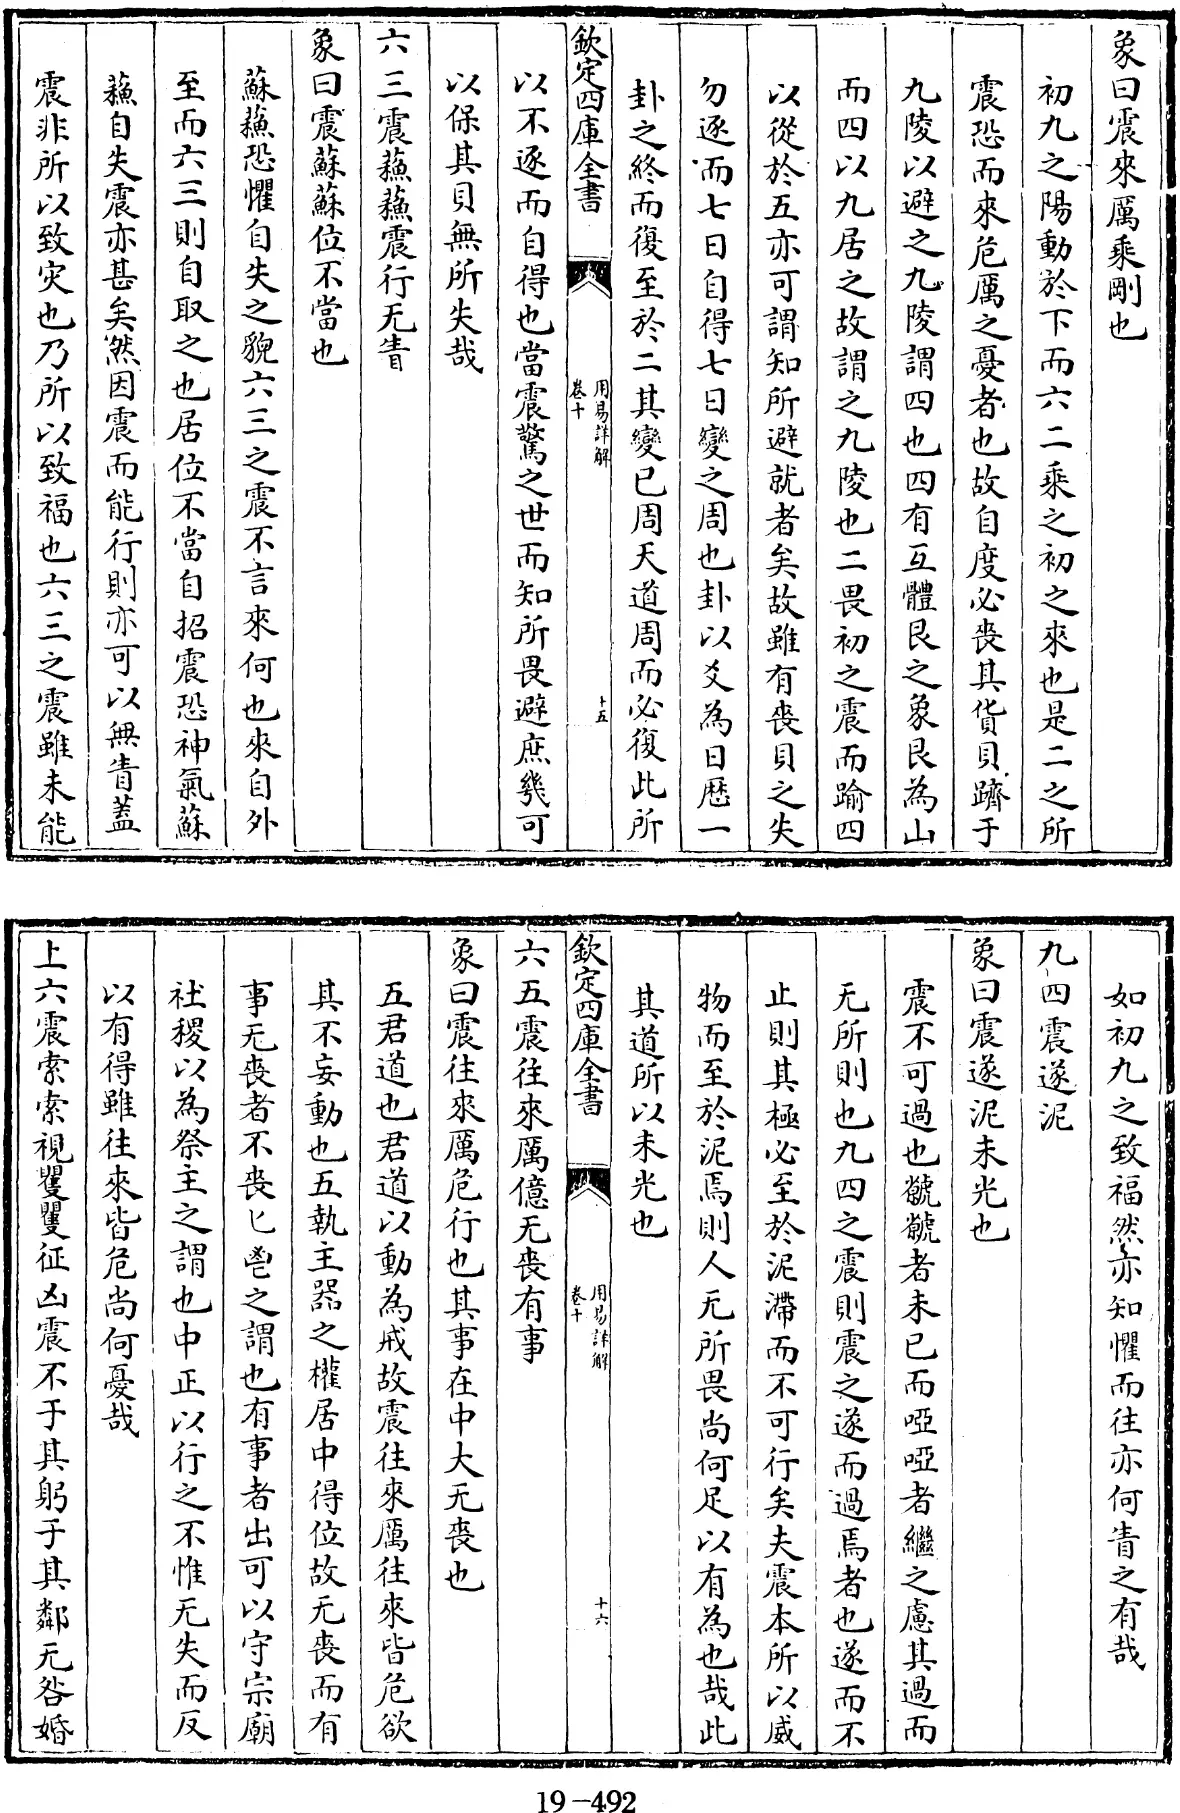 象曰震來厲乗剛也
初九之陽動於下而六二乗之初之來也是二之所
震恐而來危厲之憂者也故自度必喪其貨貝躋于
九陵以避之九陵謂四也四有互體艮之象艮為山
而四以九居之故謂之九陵也二畏初之震而踰四
以從於五亦可謂知所避就者矣故雖有喪貝之失
勿逐而七日自得七日變之周也卦以爻為日歴一
卦之終而復至於二其變已周天道周而必復此所
欽定四庫全書
用易詳解
卷十
十五
以不逐而自得也當震驚之世而知所畏避庶幾可
以保其貝無所失哉
六三震蘓蘓震行无眚
象曰震蘇蘇位不當也
蘇蘓恐懼自失之貌六三之震不言來何也來自外
至而六三則自取之也居位不當自招震恐神氣蘇
蘓自失震亦甚矣然因震而能行則亦可以無眚蓋
震非所以致灾也乃所以致福也六三之震雖未能
如初九之致福然亦知懼而往亦何眚之有哉
九四震遂泥
象曰震遂泥未光也
震不可過也虩虩者未已而啞啞者繼之慮其過而
无所則也九四之震則震之遂而過焉者也遂而不
止則其極必至於泥滯而不可行矣夫震本所以威
物而至於泥焉則人无所畏尚何足以有為也哉此
其道所以未光也
欽定四庫全書
用易詳解
卷十
十六
六五震往來厲億无喪有事
象曰震往來厲危行也其事在中大无喪也
五君道也君道以動為戒故震往來厲往來皆危欲
其不妄動也五執主器之權居中得位故无喪而有
事无喪者不喪匕鬯之謂也有事者出可以守宗廟
社稷以為祭主之謂也中正以行之不惟无失而反
以有得雖往來皆危尚何憂哉
上六震索索視矍矍征凶震不于其躬于其鄰无咎婚
19-492